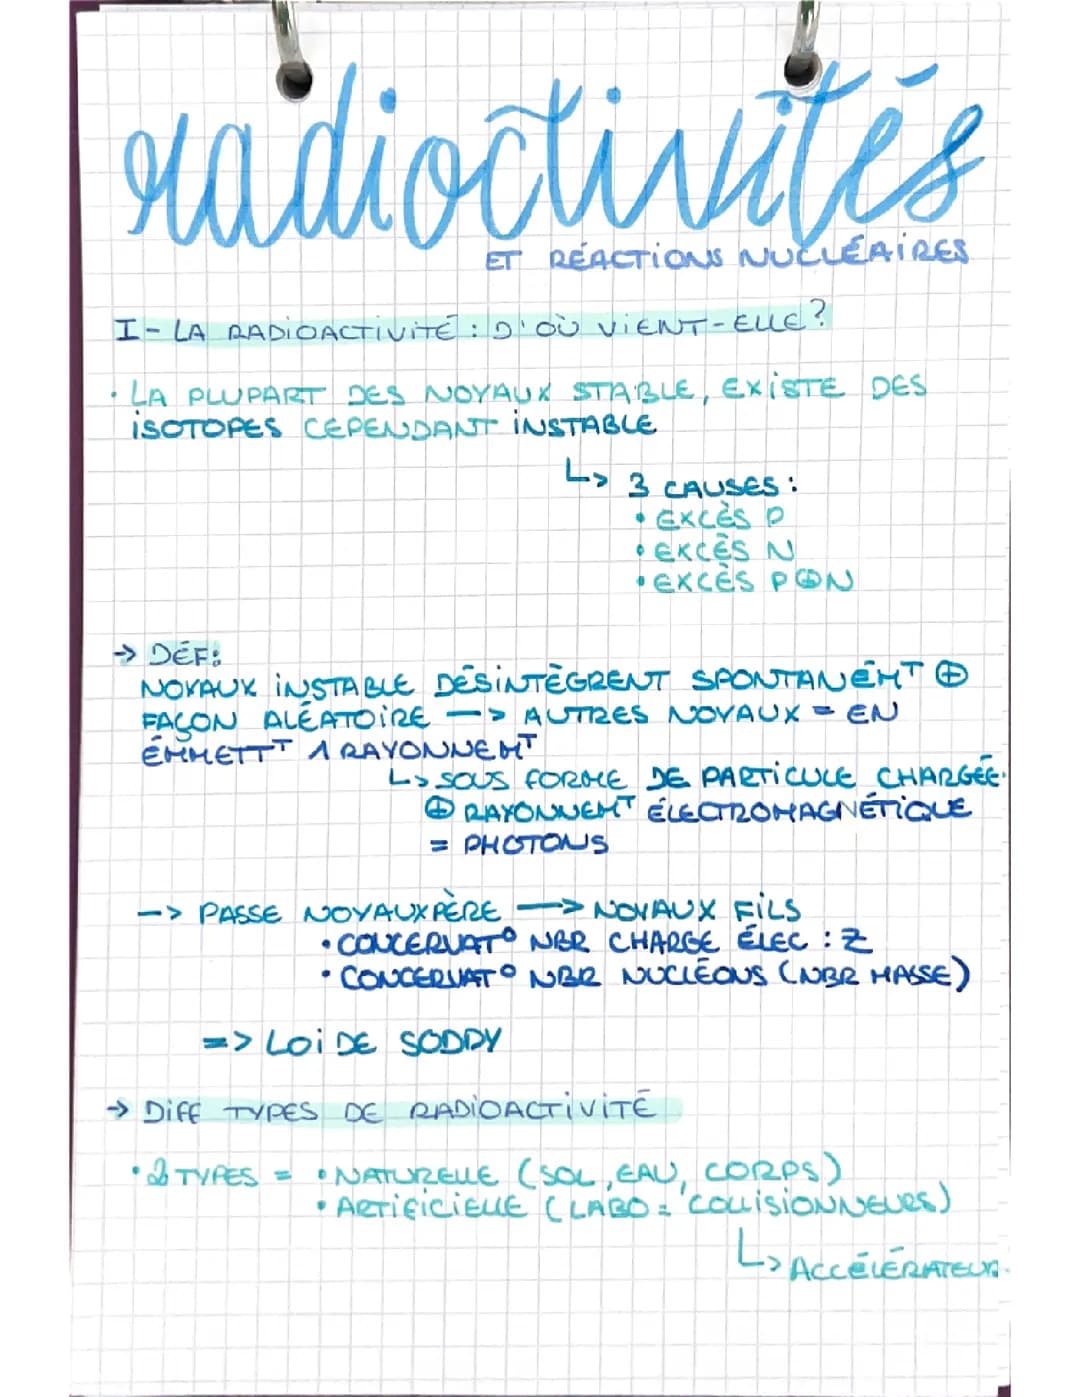 radioctivités
ET RÉACTIONS NUCLÉAIRES
I - LA RADIOACTIVITÉ : D'OÙ VIENT-ELLE ?
• LA PLUPART DES NOYAUX STABLE, EXISTE DES
ISOTOPES CEPENDANT INSTABLE
↳ 3 CAUSES :
• EXCÈS P
• EXCÈS N
• EXCÈS P⊕N
→ DÉF:
NOYAUX INSTABLE DÉSINTÈGRENT SPONTANÉMT ⊕
FAÇON ALÉATOIRE —> AUTRES NOYAUX = EN
ÉMMETTT 1 RAYONNEMT
↳ SOUS FORME DE PARTICULE CHARGÉE.
⊕ RAYONNEMT ÉLECTROMAGNÉTIQUE
= PHOTONS
—> PASSE NOYAUX PÈRE —> NOYAUX FILS
• CONCERVAT° NBR CHARGE ÉLEC : Z
• CONCERVAT° NBR NUCLÉONS (NBR MASSE)
=> LOI DE SODDY
→ DIFF TYPES DE RADIOACTIVITÉ
• 2 TYPES = • NATURELLE (SOL, EAU, CORPS)
• ARTIFICIELLE (LABO = 'COLLISIONNEURS)
↳ ACCÉLÉRATEUR.